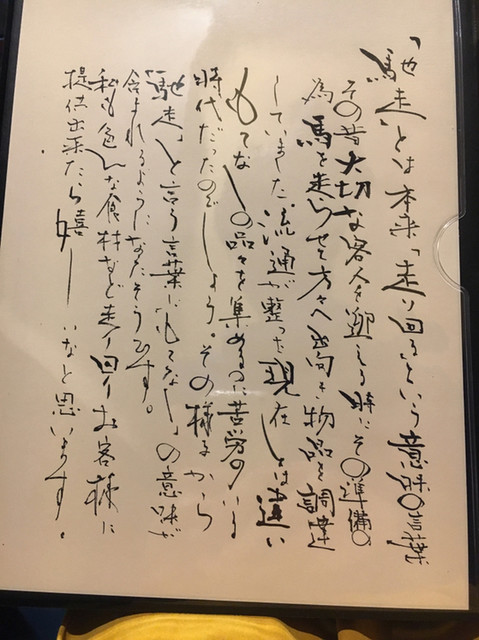 「馳走」とは本来「走り回るという意味の言葉
その昔大切な客人を迎える時にその準備の
為馬を走らせ方々へ出向き物品を調達
していました 流通が整った現在とは違い
もてなしの品々を集めるのに苦労のいる
時代だったのでしょう。その様子から
「馳走」と言う言葉に「もてなし」の意味が
含まれるようになたそうです。
私も色んな食材など走り回りお客様に
提供出来たら嬉しいなと思います。